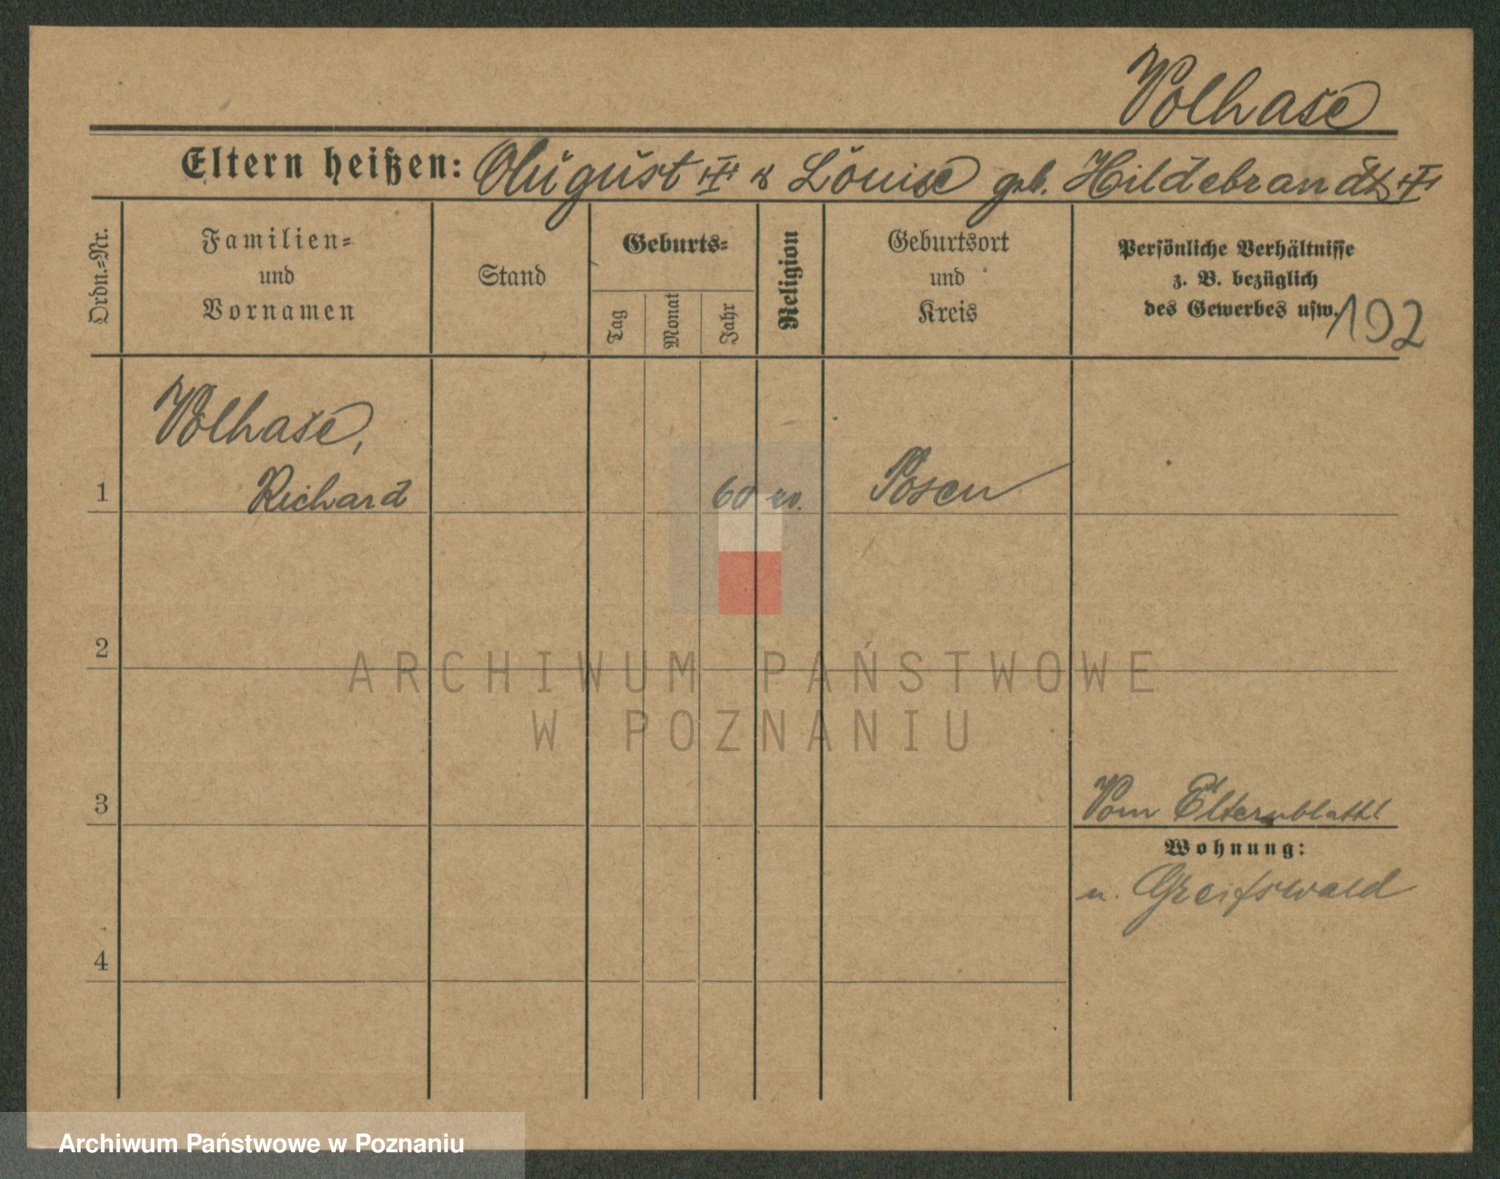 Volhase
Eltern heißen: August & Louise geb. Hildebrandt
Ordn.=Nr.
Familien=
und
Vornamen
Stand
Geburts=
Tag
Monat
Jahr
Religion
Geburtsort
und
Kreis
Persönliche Verhältnisse
z. B. bezüglich
des Gewerbes usw.
192
Volhase,
1 Richard 60 Posen
2
ARCHIWUM PAŃSTWOWE
W POZNANIU
3
Vom Elternblatt!
Wohnung:
n. Greifswald
4
Archiwum Państwowe w Poznaniu